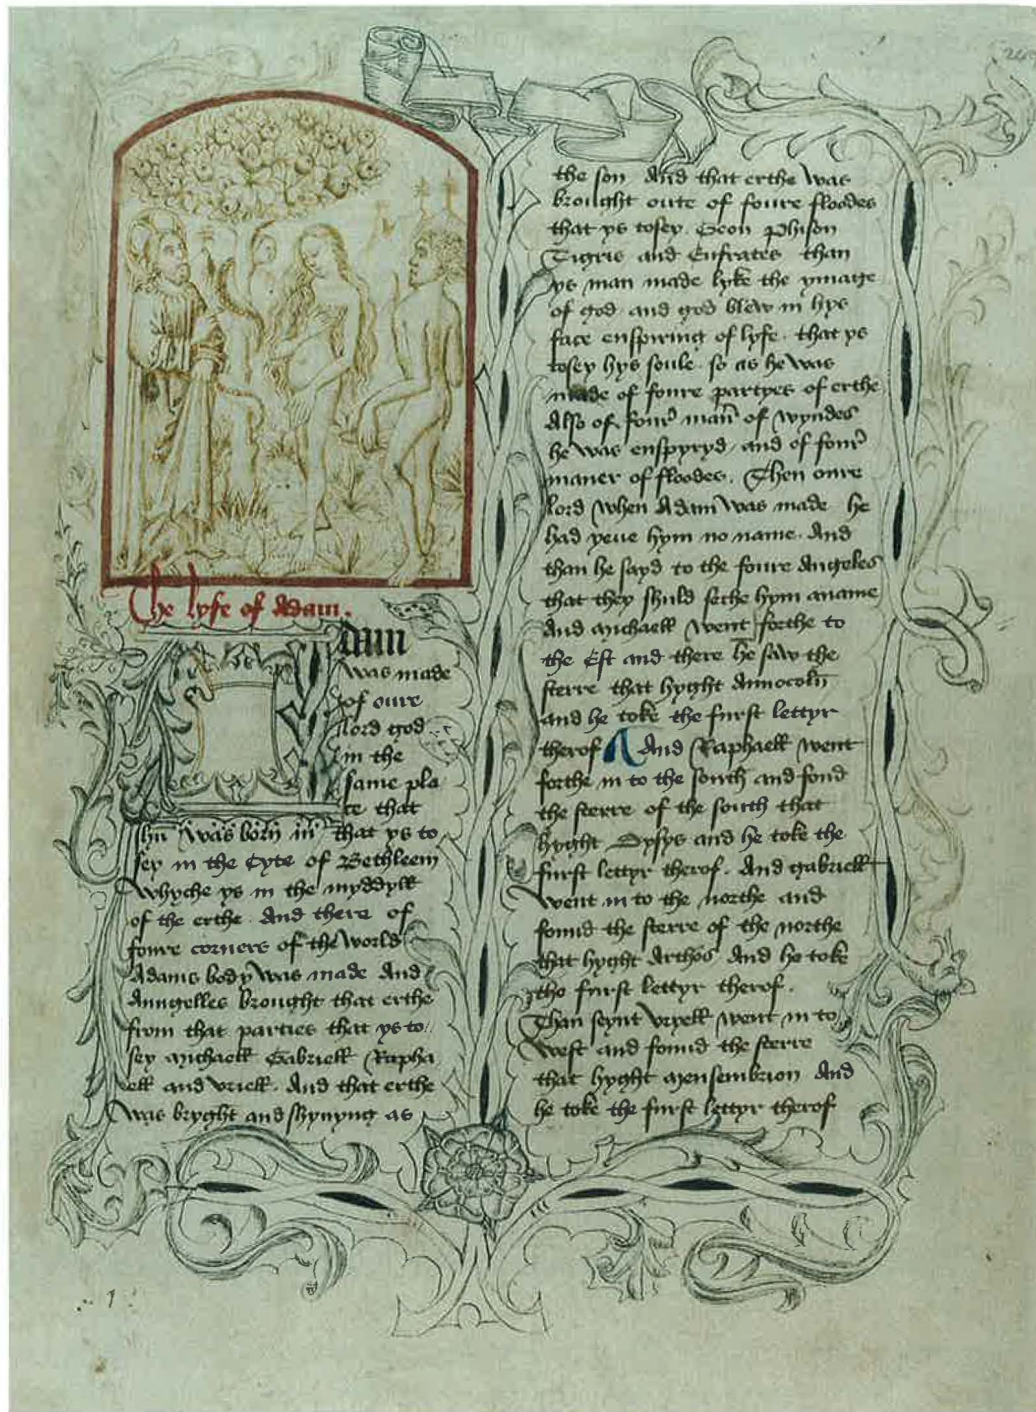 The lyfe of Adam.
Adam
was made
of oure
lord god
in the
same pla
ce that
Ihū was born in that ys to
sey in the Cyte of Bethleem
whyche ys in the myddyll
of the erthe And there of
foure corners of the world
Adams body was made And
Aungelles brought that erthe
from that parties that ys to
sey Michaell Gabriell Rapha
ell and Uriell. And that erthe
was bryght and shynyng as
the son And that erthe was
brought oute of foure floodes
that ys tosey. Geon Phison
Tigris and Eufrates than
ys man made lyke the ymage
of god and god blew in hys
face enspiring of lyfe. that ys
tosey hys soule. so as he was
made of foure partyes of erthe
Also of four man̄ of wyndes
he was enspyryd and of four
maner of floodes. Then oure
lord when Adam was made he
had yeue hym no name. And
than he sayd to the foure Angeles
that they shuld seche hym aname
And Michaell went forthe to
the Est and there he saw the
sterre that hyght Annocolin̄
and he toke the furst lettyr
therof A And Raphaell went
forthe in to the south and fond
the sterre of the south that
hyght Dysys and he toke the
furst lettyr therof. And Gabriell
went in to the northe and
found the sterre of the northe
that hyght Arthos And he toke
the furst lettyr therof.
Than seynt Uryell went in to
west and found the sterre
that hyght Mensembrion And
he toke the furst lettyr therof
1